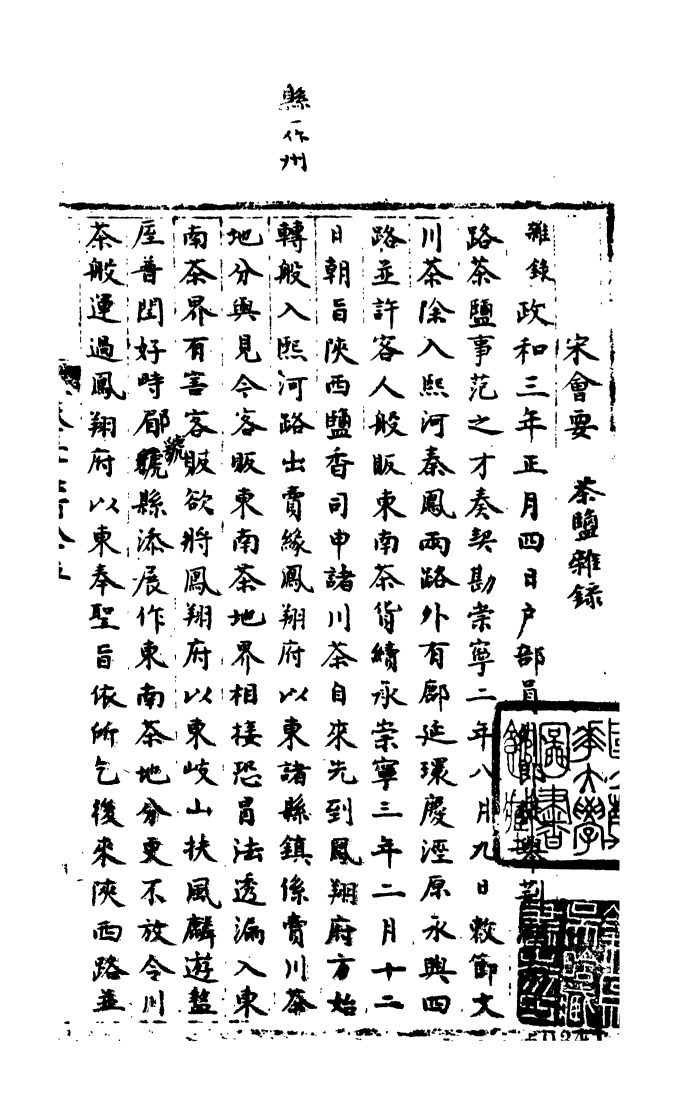 縣一作州
宋會要 茶鹽雜錄
雜錄政和三年正月四日户部員外郎
路茶鹽事范之才奏契勘崇寧二年八月九日敕節文
川茶除入熙河秦鳳兩路外有鄜延環慶涇原永興四
路並許客人般販東南茶貨續承崇寧三年二月十二
日朝旨陝西鹽香司申諸川茶自來先到鳳翔府方始
轉般入熙河路出賣緣鳳翔府以東諸縣鎮係賣川茶
地分與見今客販東南茶地界相接恐冒法透漏入東
南茶界有害客販欲將鳳翔府以東岐山扶風麟遊盩
厔普閏好時郿虢縣添展作東南茶地分更不放令川
茶般運過鳳翔府以東奉聖旨依所乞後來陝西路並